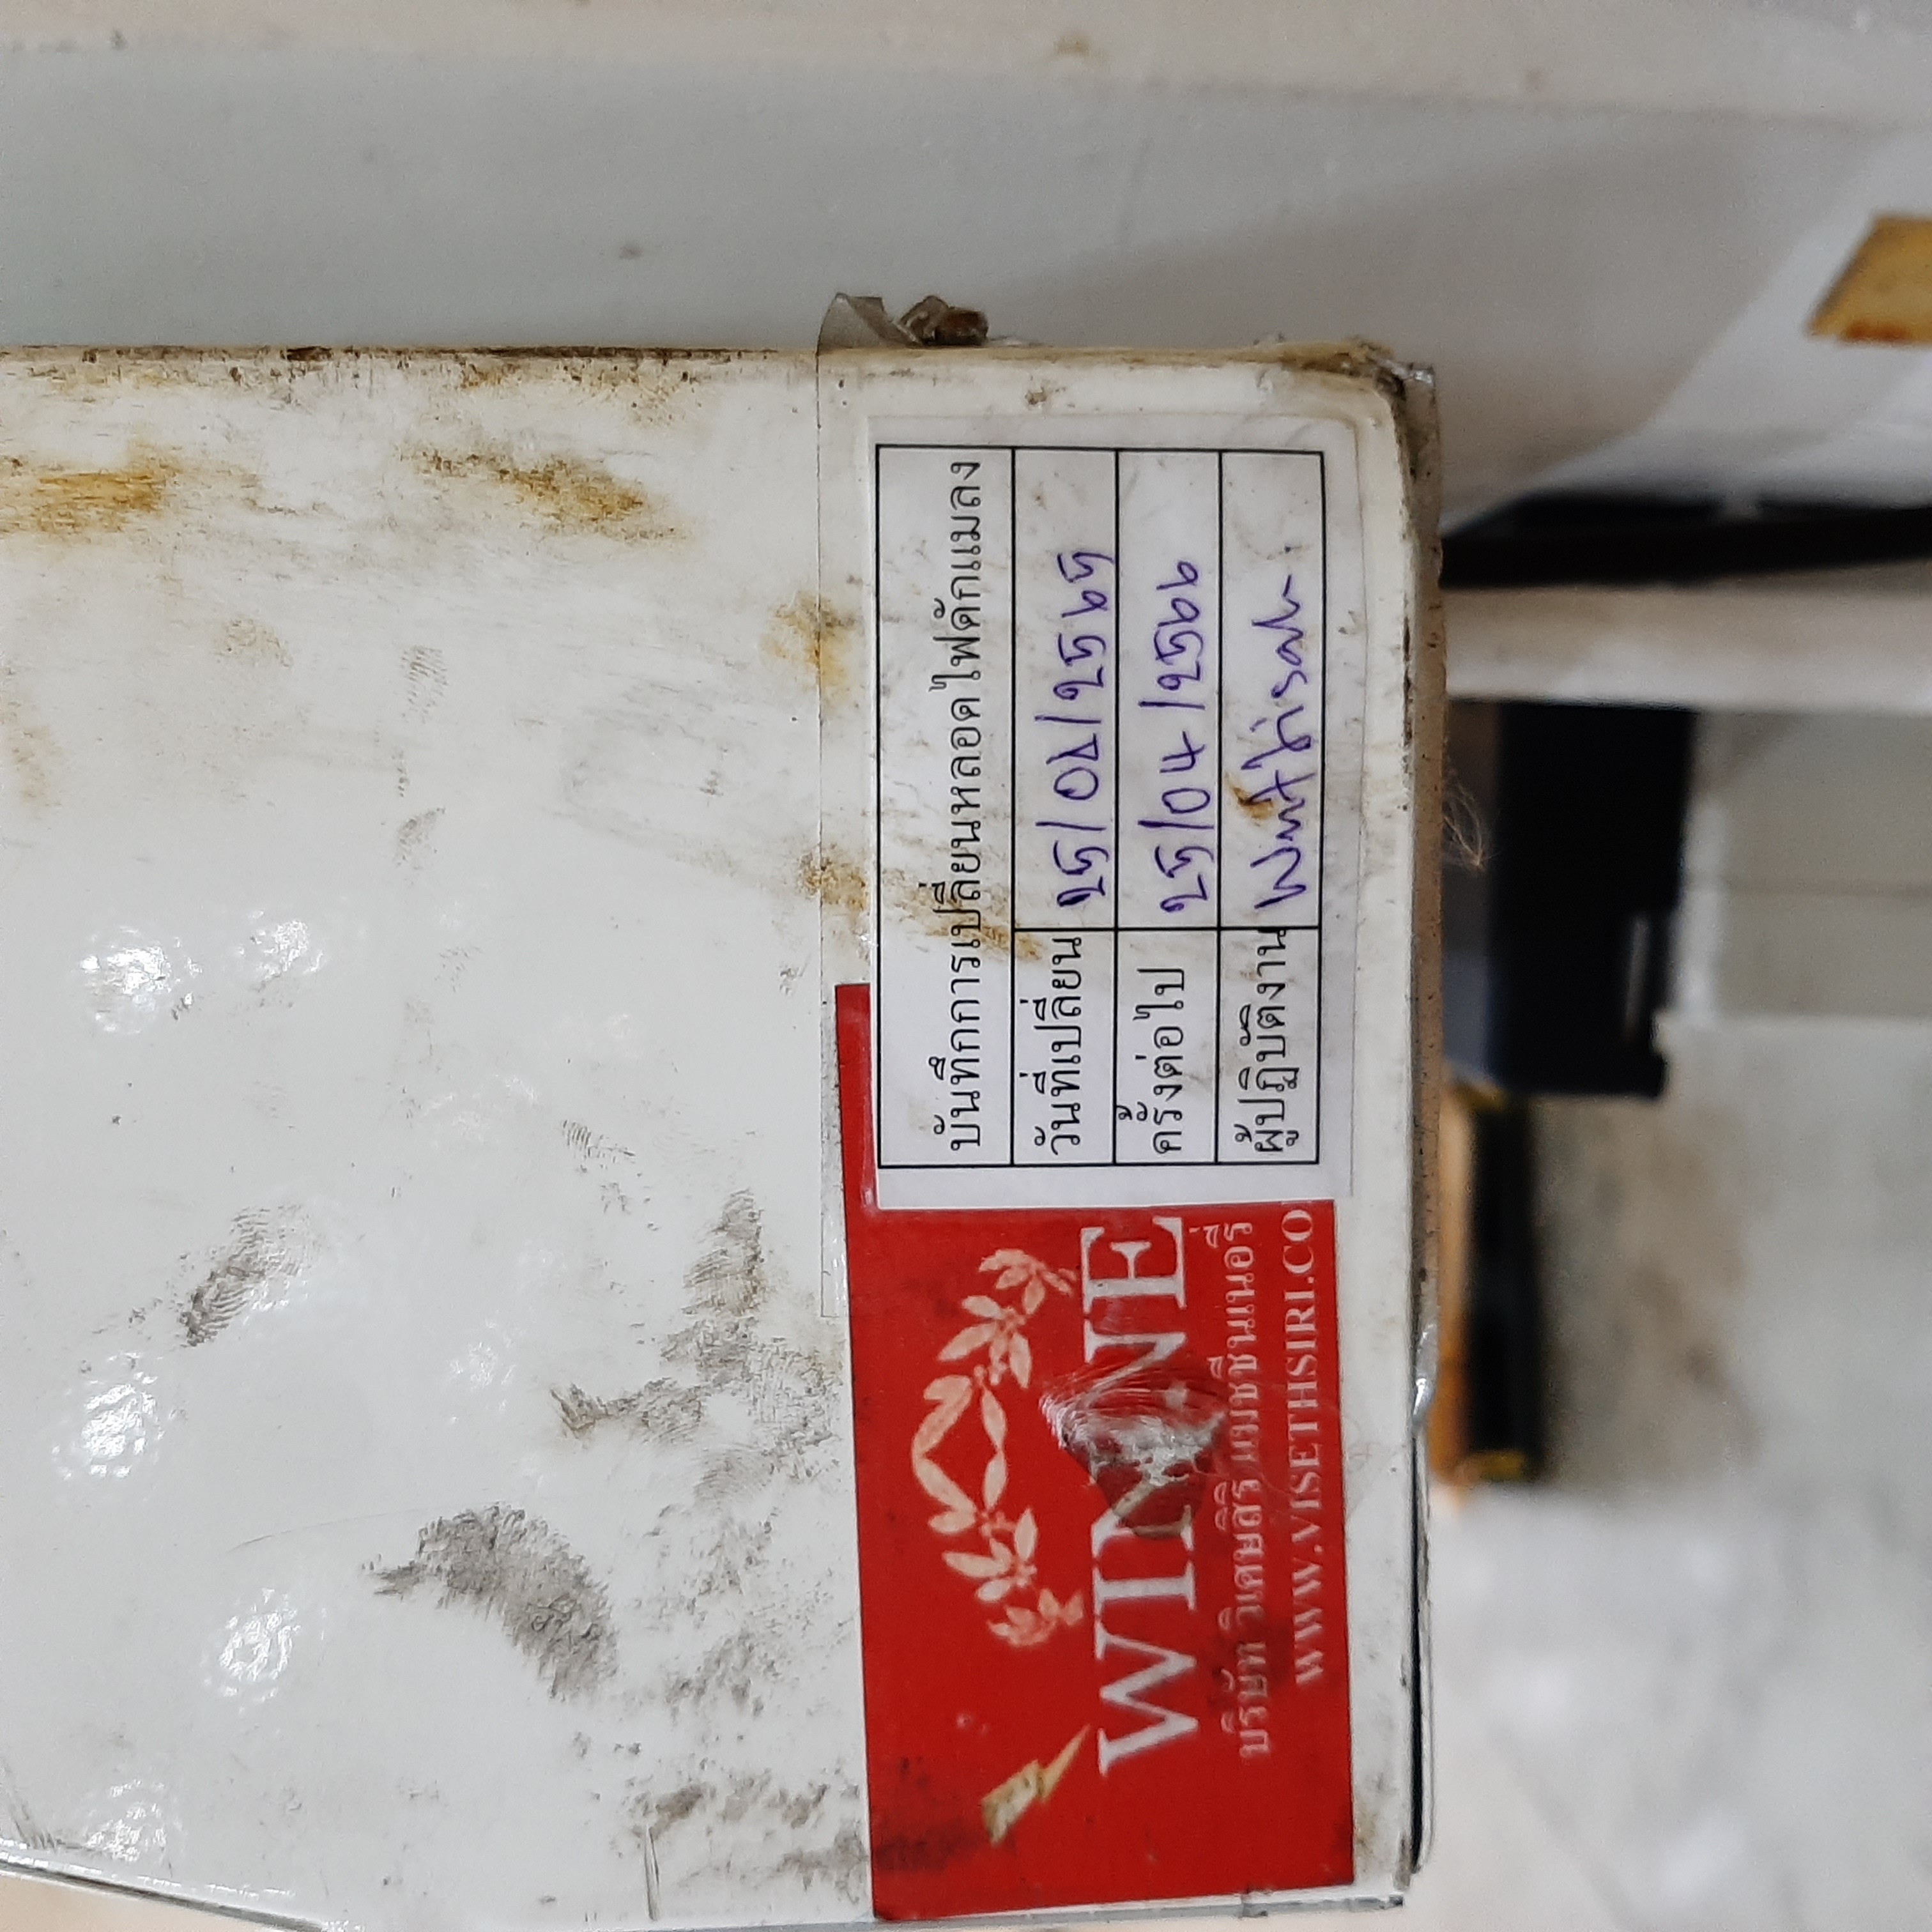 WINNE
บริษัท วิเศษสิริ แมชชีนเนอรี่
WWW.VISETHSIRI.CO
บันทึกการเปลี่ยนหลอดไฟดักแมลง
วันที่เปลี่ยน 25/04/2565
ครั้งต่อไป 25/04/2566
ผู้ปฏิบัติงาน